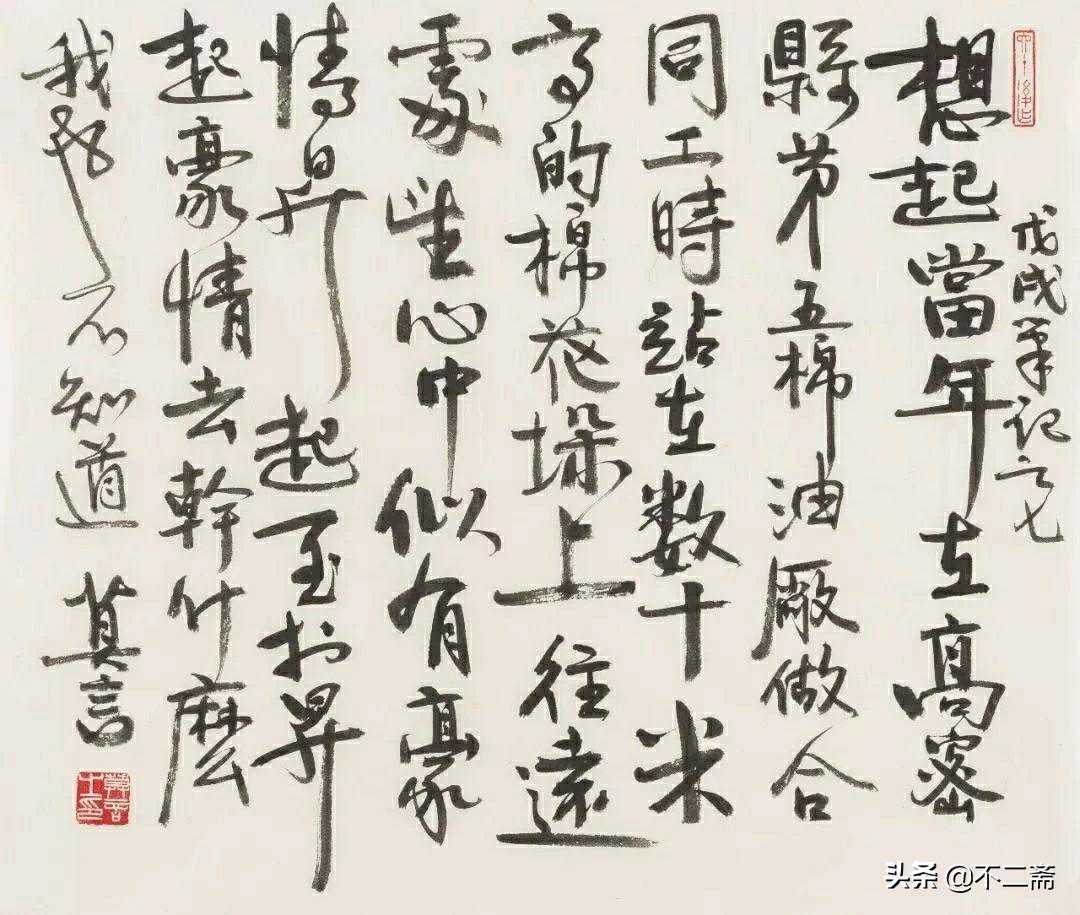 戊戌筆記之七
想起當年在高密
縣第五棉油廠做合
同工時站在数十米
高的棉花垛上往遠
處望心中似有豪
情昇起至於昇
起豪情去幹什麼
我却不知道 莫言
头条 @不二斋